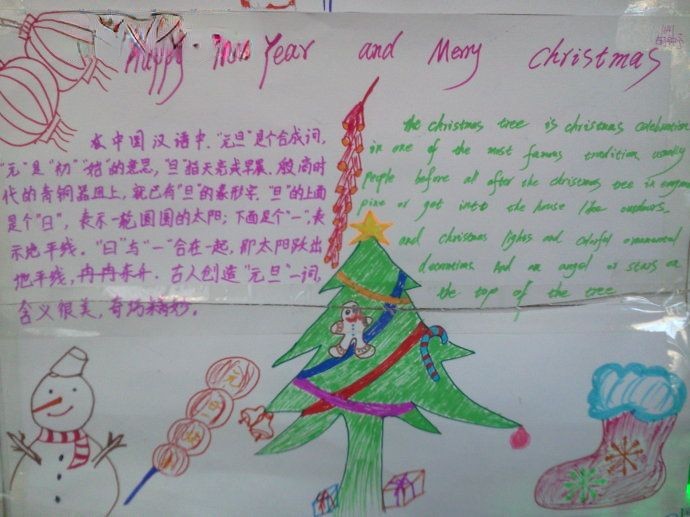 Happy New Year and Merry Christmas
在中国汉语中,"元旦"是个合成词,
"元"是"初""始"的意思,"旦"指天亮或早晨。殷商时
代的青铜器皿上,就已有"旦"的象形字,"旦"的上面
是个"日",表示一轮圆圆的太阳;下面是个"一",表
示地平线。"日"与"一"合在一起,即太阳跃出
地平线,冉冉东升。古人创造"元旦"一词,
含义很美,奇巧精妙。
the christmas tree is christmas celebration
in one of the most famous tradition usually
people before all after the christmas tree is
pine or get into the house like outdoors
and christmas lights and colorful ornamental
decorations And an angel or stars on
the top of the tree
元
旦
快